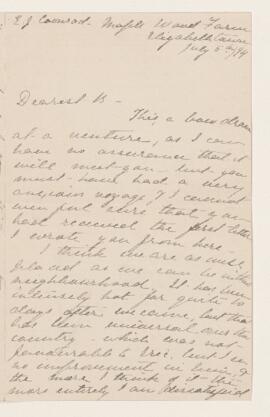 E J Conrad. Maple Wood Farm
Elizabethtown
July 5th/94
Dearest B -
This, a bow drawn
at a venture, as I can
have no assurance that it
will meet you - but you
must have had a very
voyage, & I cannot
even feel sure that you
had received the first letter
I wrote you from here -
I think we are as well
placed as we can be in this
neighbourhood. It has been
intensely hot for quite
days after we came, but that
has been universal over the
country - which was not
to but I see
no improvement in him, &
the more I think of it the
more entirely I am dissatisfied